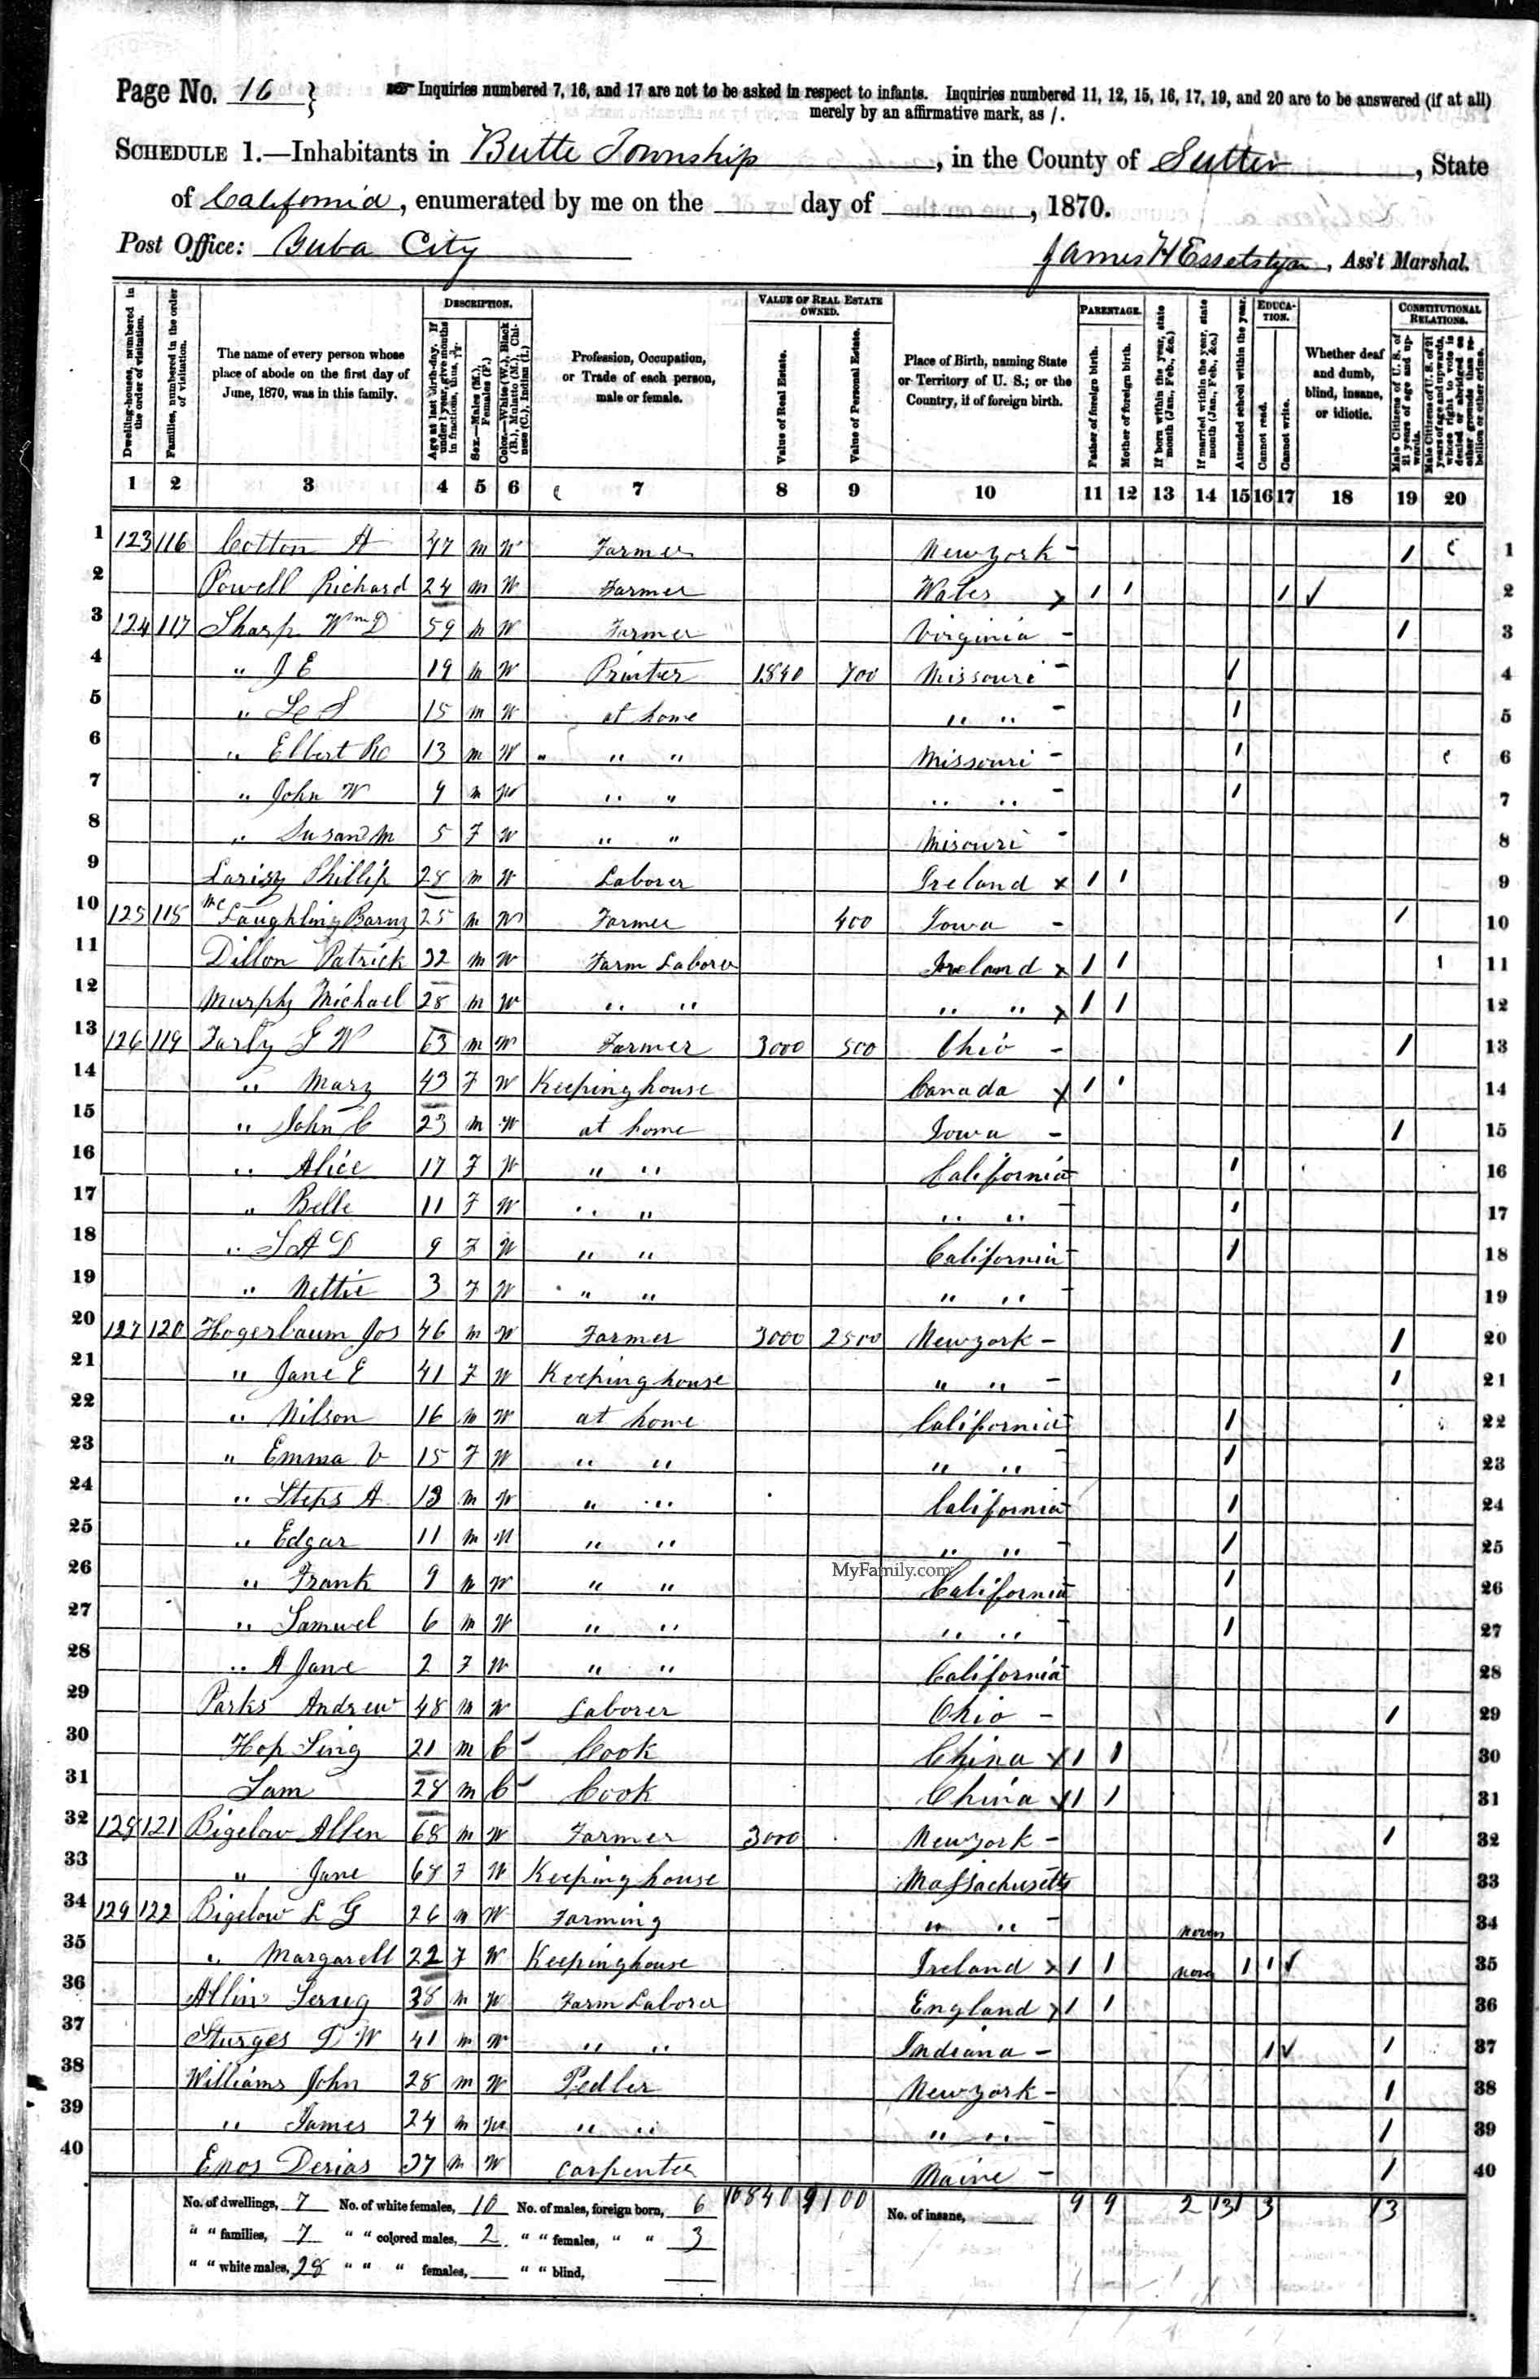 Page No. 16 }
Inquiries numbered 7, 16, and 17 are not to be asked in respect to infants. Inquiries numbered 11, 12, 15, 16, 17, 19, and 20 are to be answered (if at all)
merely by an affirmative mark, as /.
SCHEDULE 1.—Inhabitants in Butte Township, in the County of Sutter, State
of California, enumerated by me on the day of , 1870.
Post Office: Yuba City
James H , Ass't Marshal.
DESCRIPTION. VALUE OF REAL ESTATE OWNED. PARENTAGE. EDUCATION. CONSTITUTIONAL RELATIONS.
Dwelling-houses, numbered in the order of visitation.
Families, numbered in the order of visitation.
The name of every person whose place of abode on the first day of June, 1870, was in this family.
Age at last birth-day. If under 1 year, give months in fractions, thus,
Sex.—Males (M.), Females (F.)
Color.—White (W.), Black (B.), Mulatto (M.), Chinese (C.), Indian (I.)
Profession, Occupation, or Trade of each person, male or female.
Value of Real Estate.
Value of Personal Estate.
Place of Birth, naming State or Territory of U. S.; or the Country, if of foreign birth.
Father of foreign birth.
Mother of foreign birth.
If born within the year, state month (Jan., Feb., &c.)
If married within the year, state month (Jan., Feb., &c.)
Attended school within the year.
Cannot read.
Cannot write.
Whether deaf and dumb, blind, insane, or idiotic.
Male Citizens of U. S. of 21 years of age and upwards.
Male Citizens of U. S. of 21 years of age and upwards, whose right to vote is denied or abridged on other grounds than rebellion or other crime.
1 2 3 4 5 6 7 8 9 10 11 12 13 14 15 16 17 18 19 20
1 123 116 Cotton A 47 m W Farmer New york - / 1
2 Powell Richard 24 m W Farmer Wales x / / / ✓ 2
3 124 117 Sharp Wm D 59 m W Farmer Virginia - / 3
4 " J E 19 m W Printer 1840 700 Missouri - / 4
5 " L S 15 m W at home " " - / 5
6 " Elbert 13 m W " " " Missouri - / 6
7 " John W 9 m W " " " " - / 7
8 " Susan M 5 F W " " Misouri - 8
9 Phillip 28 m W Laborer Ireland x / / 9
10 125 118 McLaughling 25 m W Farmer 400 Iowa - / 10
11 Dillon Patrick 32 m W Farm Laborer Ireland x / / 11
12 Murphy Michael 28 m W " " " " x / / 12
13 126 119 W 63 m W Farmer 3000 500 Ohio - / 13
14 " Mary 43 F W Keeping house Canada x / / 14
15 " John C 23 m W at home Iowa - / 15
16 " Alice 17 F W " " California - / 16
17 " Belle 11 F W " " " " - / 17
18 " 9 F W " " California - / 18
19 " Nettie 3 F W " " " " - 19
20 127 120 Hogerbaum Jos 46 m W Farmer 3000 2500 New york - / 20
21 " Jane E 41 F W Keeping house " " - / 21
22 " Nilson 16 m W at home California - / 22
23 " Emma V 15 F W " " " " - / 23
24 " Steps A 13 m W " " California - / 24
25 " Edgar 11 m W " " " " - / 25
26 " Frank 9 m W " " California - / 26
MyFamily.com
27 " Samuel 6 m W " " " " - / 27
28 " A Jane 2 F W " " California - 28
29 Parks Andrew 48 m W Laborer Ohio - / 29
30 Hop Sing 21 m C Cook China x / / 30
31 Sam 28 m C Cook China x / / 31
32 128 121 Bigelow Allen 68 m W Farmer 3000 New york - / 32
33 " Jane 68 F W Keeping house Massachusetts 33
34 129 122 Bigelow L G 26 m W Farming " " - 34
35 " Margarell 22 F W Keeping house Ireland x / / / / ✓ 35
36 Allin 38 m W Farm Laborer England x / / 36
37 Sturges D W 41 m W " " Indiana - / ✓ / 37
38 Williams John 28 m W Pedler New york - / 38
39 " James 24 m W " " " " - / 39
40 Enos 37 m W Carpenter Maine - / 40
No. of dwellings, 7 No. of white females, 10 No. of males, foreign born, 6 10840 9100 No. of insane, 9 9 2 13 1 3 13
" " families, 7 " " colored males, 2 " " females, " " 3
" " white males, 28 " " " females, " " blind,